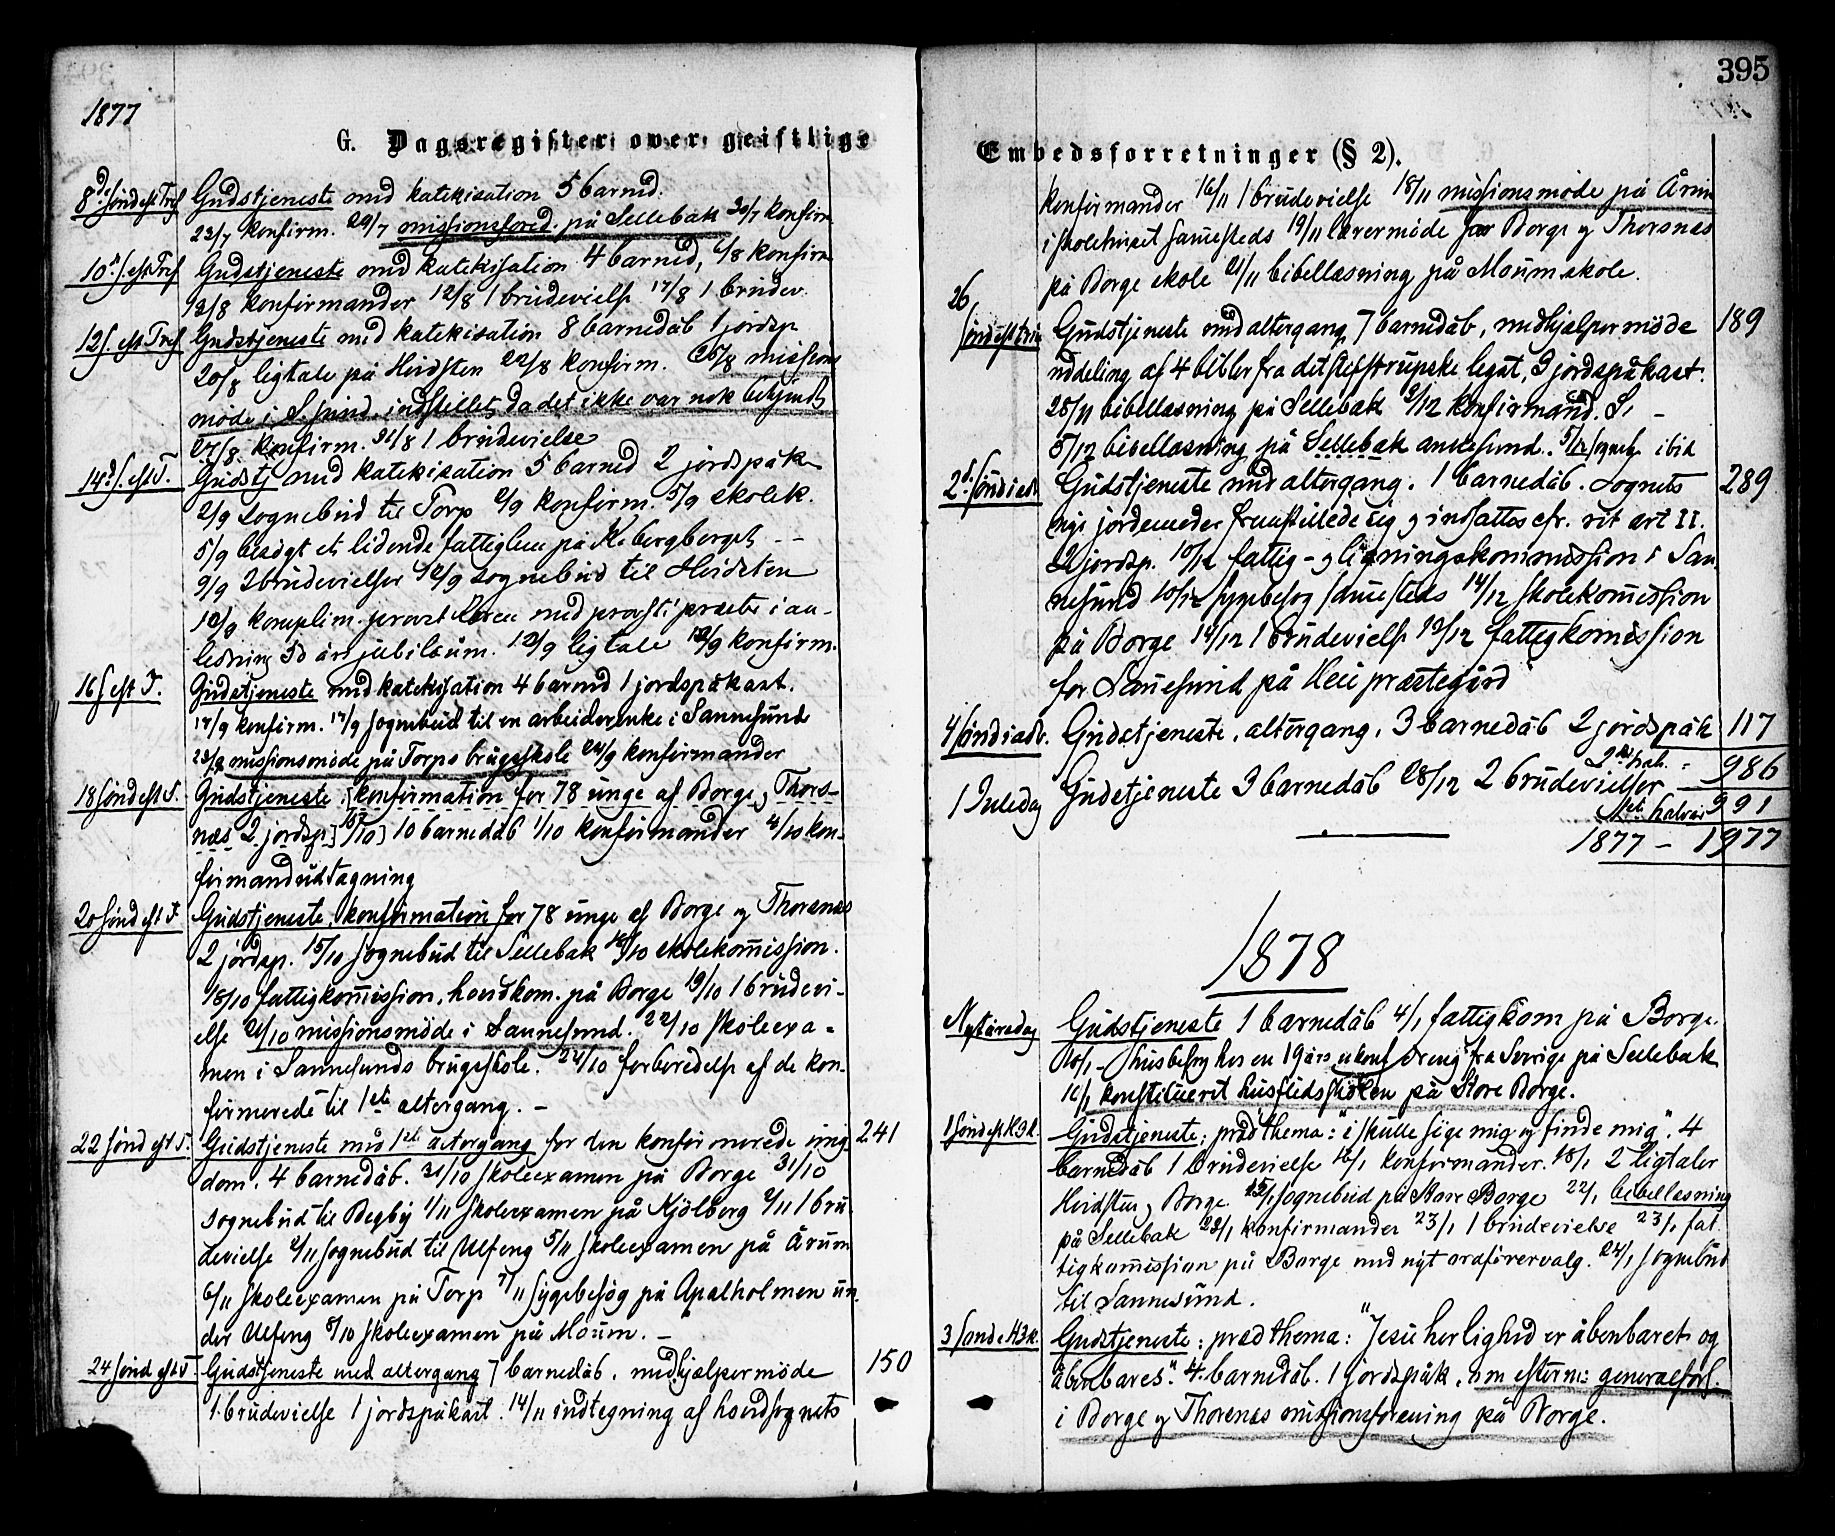 1877
G. Dagsregister over geistlige
8de sønd eft Tref Gudstjeneste med katekisation 5 barned.
23/7 konfirm. 29/7 missionsfored. på Sellebak 30/7 konfirm
10de s. eft Tref Gudstjeneste med katekisation 4 barned, 6/8 konfirm
13/8 konfirmander 12/8 1 brudevielse 17/8 1 brudev.
12 s. eft Tref. Gudstjeneste med katekisation 8 barnedåb 1 jordsp
20/8 ligtale på Heidsten 22/8 konfirm. 26/8 missions
møde i S.sund. indstillet, da det ikke var nok bekjendt
27/8 konfirm. 31/8 1 brudevielse
14de s. eft T. Gudstj med katekisation 5 barned 2 jordspåk
2/9 sognebud til Torp konfirm. 5/9 skolek.
5/9 besøgt et lidende fattiglem på
9/9 2 brudevielser 12/9 sognebud til Heidsten
komplim. provst med provsti præster i an-
ledning 50 års jubilæum. 12/9 ligtale konfirm.
16 s eft T. Gudstjeneste med katekisation 4 barned 1 jordspåkast.
17/9 konfirm. 17/9 sognebud til en arbeiderenke i Sannesund
23/9 missionsmøde på Torps brugsskole 24/9 konfirmander
18 sønd eft T. Gudstjeneste [konfirmation for 78 unge af Borge og Thors-
næs 2 jordsp.] 10 barnedåb 1/10 konfirmander 4/10 kon-
firmandudtagning
20 sønd eft T. Gudstjeneste, konfirmation for 78 unge af Borge og Thorsnæs
2 jordsp. 15/10 sognebud til Sellebak skolekommission.
18/10 fattigkommission, herredkom. på Borge 19/10 1 brudevi-
else 21/10 missionsmøde i Sannesund. 22/10 skoleexa-
men i Sannesunds brugsskole. 24/10 forberedelse af de kon-
firmerede til 1ste altergang. –
22 sønd eft T. Gudstjeneste med 1ste altergang for den konfirmerede ung- 241
dom. 4 barnedåb. 31/10 skoleexamen på Borge 31/10
sognebud til Begby 1/11 skoleexamen på Kjölberg 2/11 1 bru-
devielse 2/11 sognebud til Ulfeng 5/11 skoleexamen på Årum
6/11 skoleexamen på Torp 7/11 sygebesøg på Apalholmen un-
der Ulfeng 8/10 skoleexamen på Moum. –
24 sønd eft T. Gudstjeneste med altergang 7 barnedåb. medhjælpermöde 150
1 brudevielse 1 jordspåkast. 14/11 indtegning af hovedsognets
395
Embedsforretninger (§ 2).
konfirmander 16/11 1 brudevielse 18/11 missionsmøde på Årum
i skolehuset samesteds 19/11 lærermöde for Borge og Thorsnæs
på Borge skole 21/11 bibellæsning på Moum skole.
26 sønd eft trin Gudstjeneste med altergang 7 barnedåb, medhjælpermöde 189
uddeling af 4 bibler fra det legat, 3 jordspåkast.
28/11 bibellæsning på Sellebak 3/12 konfirmand. S. –
5/12 bibellæsning på Sellebak 5/12 sygeb. ibid
2d. sønd i adv. Gudstjeneste med altergang. 1 barnedåb. Sognets 289
nye jordemoder fremstillede sig og indsattes efr. rit art II.
2 jordsp. 10/12 fattig- og ligningskommission i San-
nesund 10/12 sygebesøg samesteds 14/12 skolekommission
på Borge 14/12 1 brudevielse 19/12 fattigkommission
for Sannesund på Heie præstegård
4 sønd i adv. Gudstjeneste, altergang, 3 barnedåb 2 jordspåk 117
2det halv. - 986
1 Juledag Gudstjeneste 3 barnedåb 28/12 2 brudevielser
1ste halvår 991
1877 – 1977
1878
Nytårsdag Gudstjeneste 1 barnedåb 4/1 fattigkom på Borge.
10/1 – husbesøg hos en 19 års ukonf dreng fra Sverige på Sellebak
konstitueret husflidsskolen på Store Borge.
1 sønd eft H3K. Gudstjeneste; præd thema: "i skulle søge mig og finde mig". 4
barnedåb 1 brudevielse 16/1 konfirmander. 18/1 2 ligtaler
Heidsten, Borge. sognebud på Store Borge 22/1 bibellæsning
på Sellebak 23/1 konfirmander 23/1 1 brudevielse 23/1 fat-
tigkommission på Borge med nyt ordförervalg. 24/1 sognebud
til Sannesund.
3 sønd e H3K. Gudstjeneste: præd thema: "Jesu herlighed er åbenbaret og
åbenbares". 4 barnedåb. 1 jordspåk, om efterm: generalfors.
i Borge og Thorsnæs missionsforening på Borge.